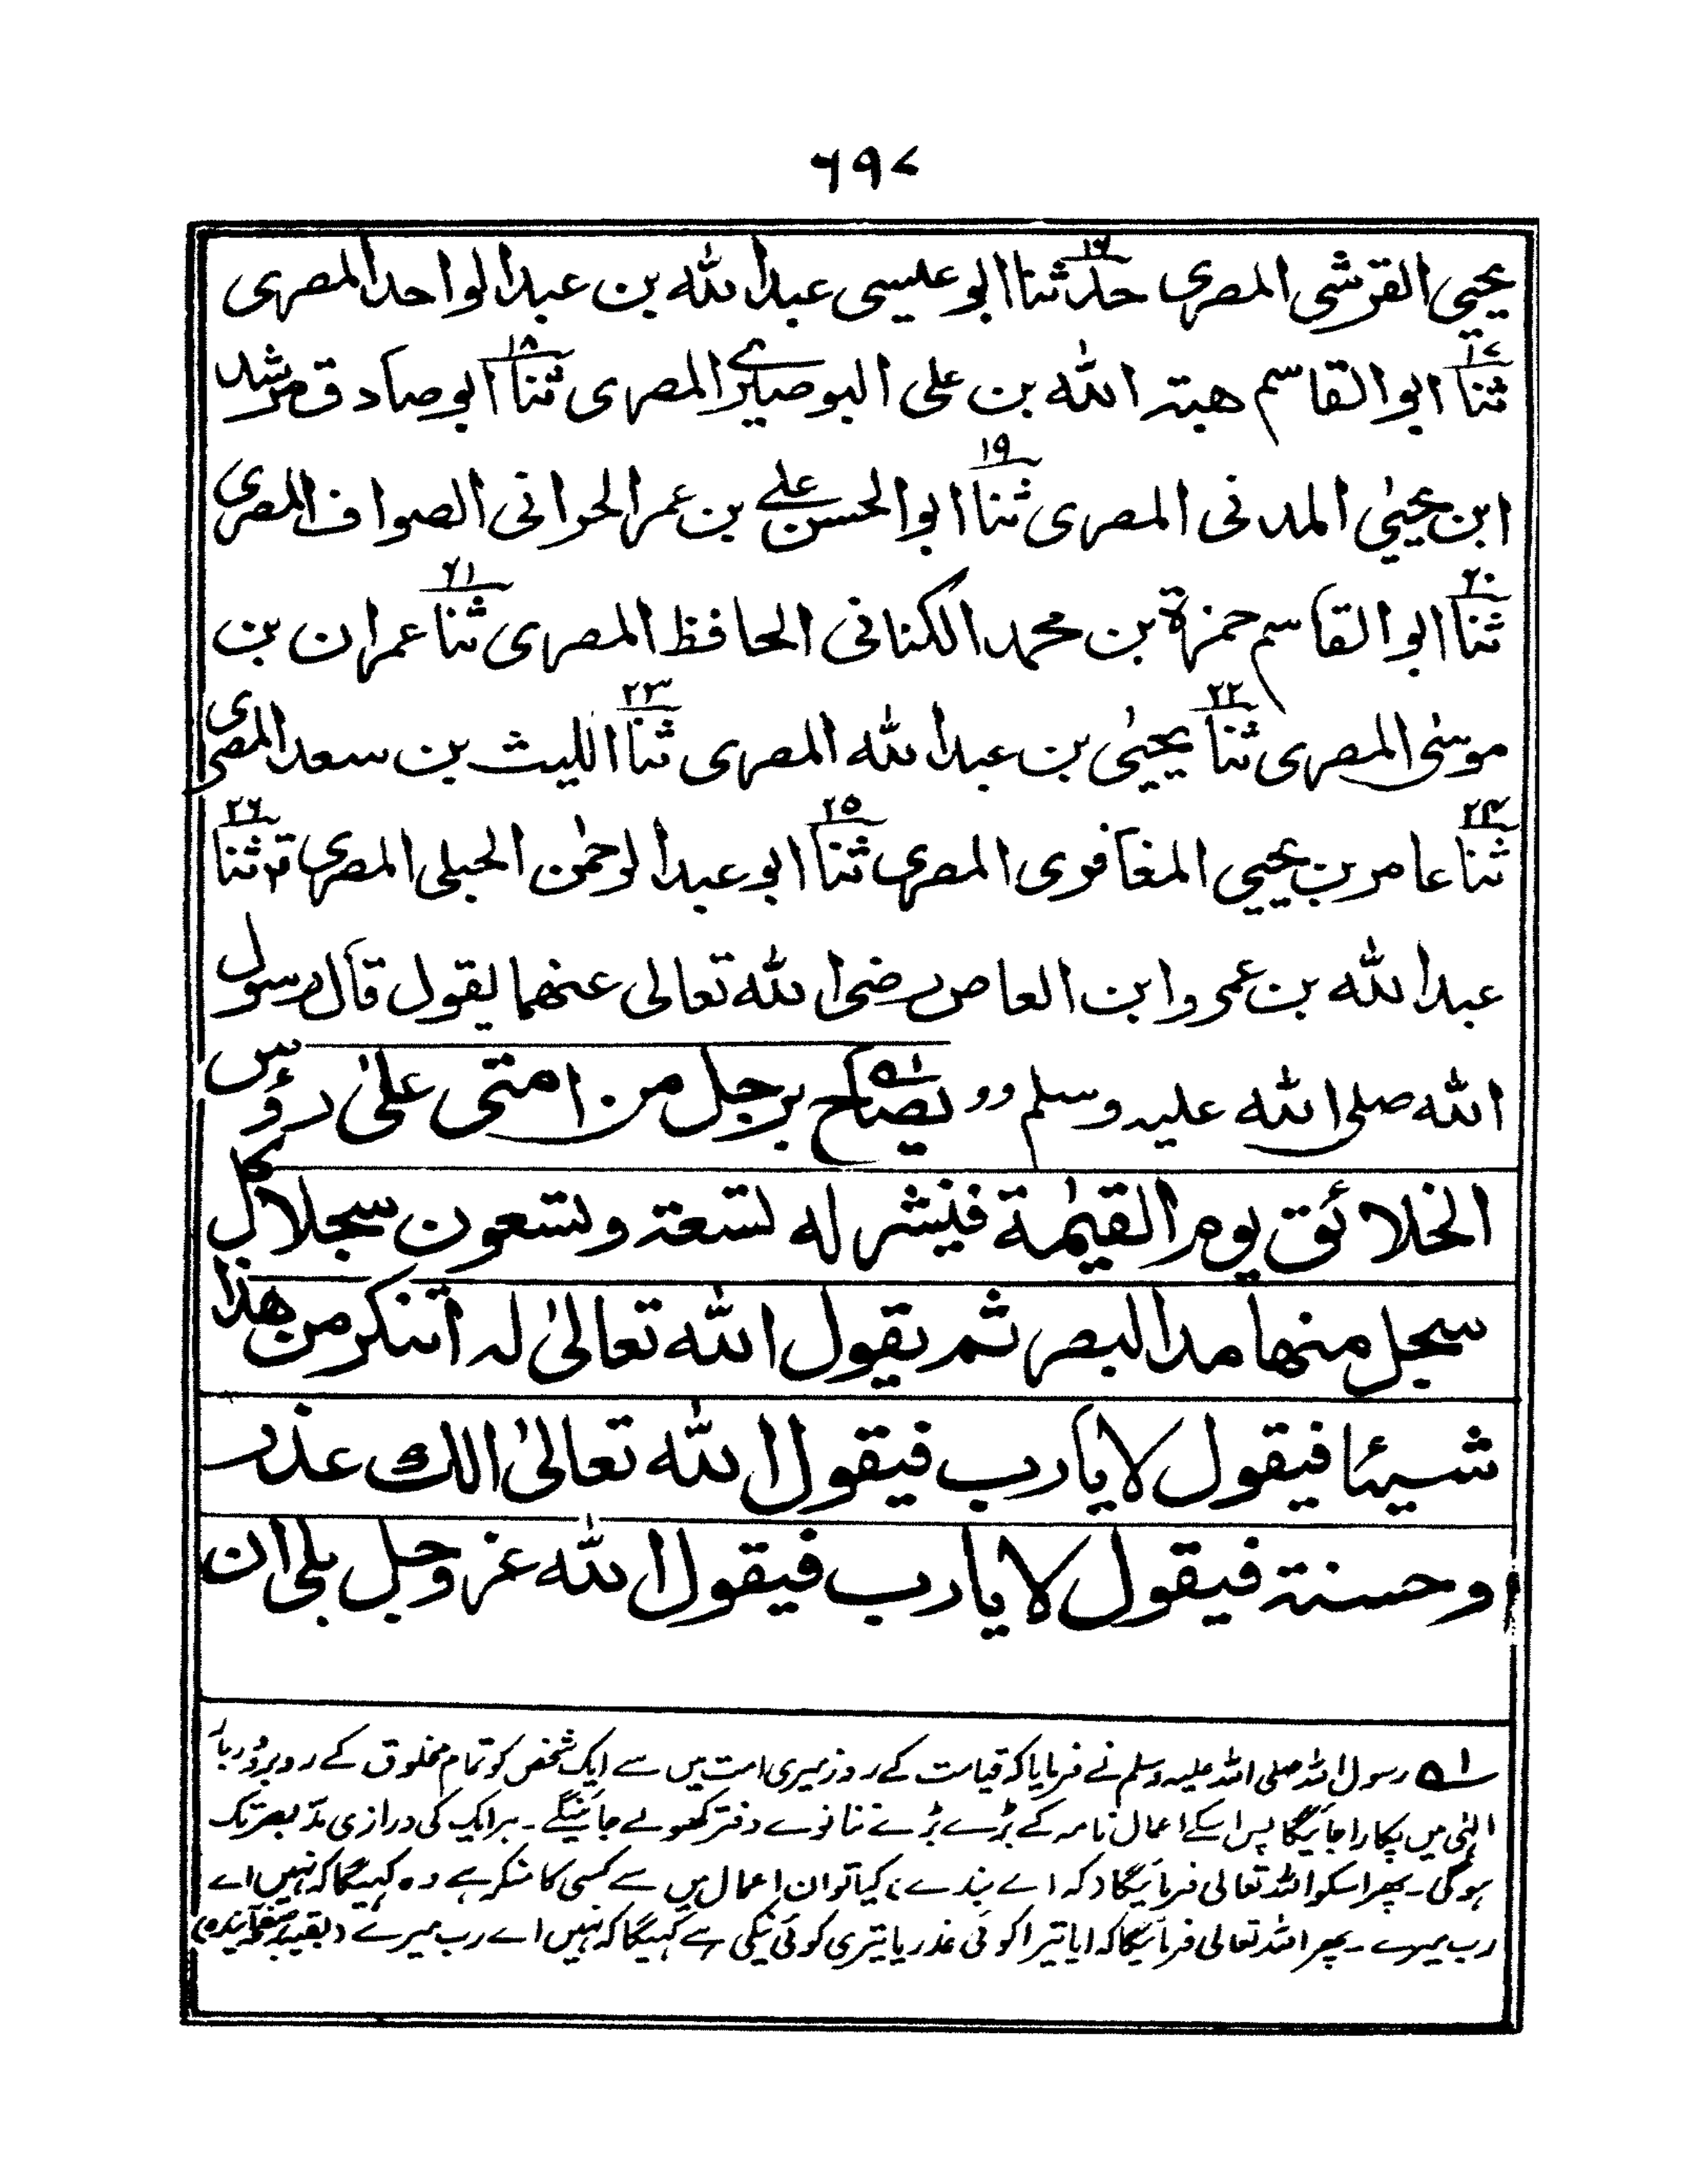 ٦٩٧
يحيي القرشي المصري حدثنا ١٦ ابو عليسى عبد الله بن عبد الواحد المصرى
ثنا ١٧ ابو القاسم هبتہ الله بن على البوصيرے المصرى ثنا ١٨ ابو صادق مرشد
ابن يحيىٰ المدنى المصرى ثنا ١٩ ابو الحسن علے بن عمر الحرانى الصواف المصرى
ثنا ٢٠ ابو القاسم حمزة بن محمد الكنانى الحافظ المصرى ثنا ٢١ عمران بن
موسٰى المصرى ثنا ٢٢ يحيىٰ بن عبد الله المصرى ثنا ٢٣ الليث بن سعد المصرى
ثنا ٢٤ عامر بن يحيي المغافرى المصرى ثنا ٢٥ ابو عبد الرحمٰن الحبلى المصرى ثنا ٢٦
عبد الله بن عمرو ابن العاص رضى الله تعالى عنهما يقول قال رسول
الله صلى الله عليہ وسلم وو يصاح ٥١ برجل من امتى علىٰ رؤس
الخلائق يوم القيٰمة فينشر له تسعۃ وتسعون سجلا كل
سجل منها مد البصر ثم يقول الله تعالىٰ لہ اتنكر من هذا
شيئا فيقول لا يارب فيقول الله تعالىٰ الك عذر
او حسنۃ فيقول لا يارب فيقول الله عز وجل بلى ان
٥١ رسول اللہ صلی اللہ علیہ وسلم نے فرمایا کہ قیامت کے روز میری امت میں سے ایک شخص کو تمام مخلوق کے روبرو دربار
الٰہی میں پکارا جائیگا پس اسکے اعمال نامہ کے بڑے بڑے ننانوے دفتر کھولے جائینگے ۔ ہر ایک کی درازی مدّ بصر تک
ہوگی ۔ پھر اسکو اللہ تعالی فرمائیگا (کہ اے بندے) کیا تو ان اعمال میں سے کسی کا منکر ہے وہ کہیگا کہ نہیں اے
رب میرے ۔ پھر اللہ تعالی فرمائیگا کہ ایا تیرا کوئی عذر یا تیری کوئی نیکی ہے کہیگا کہ نہیں اے رب میرے (بقیہ بصفحہ آیندہ)